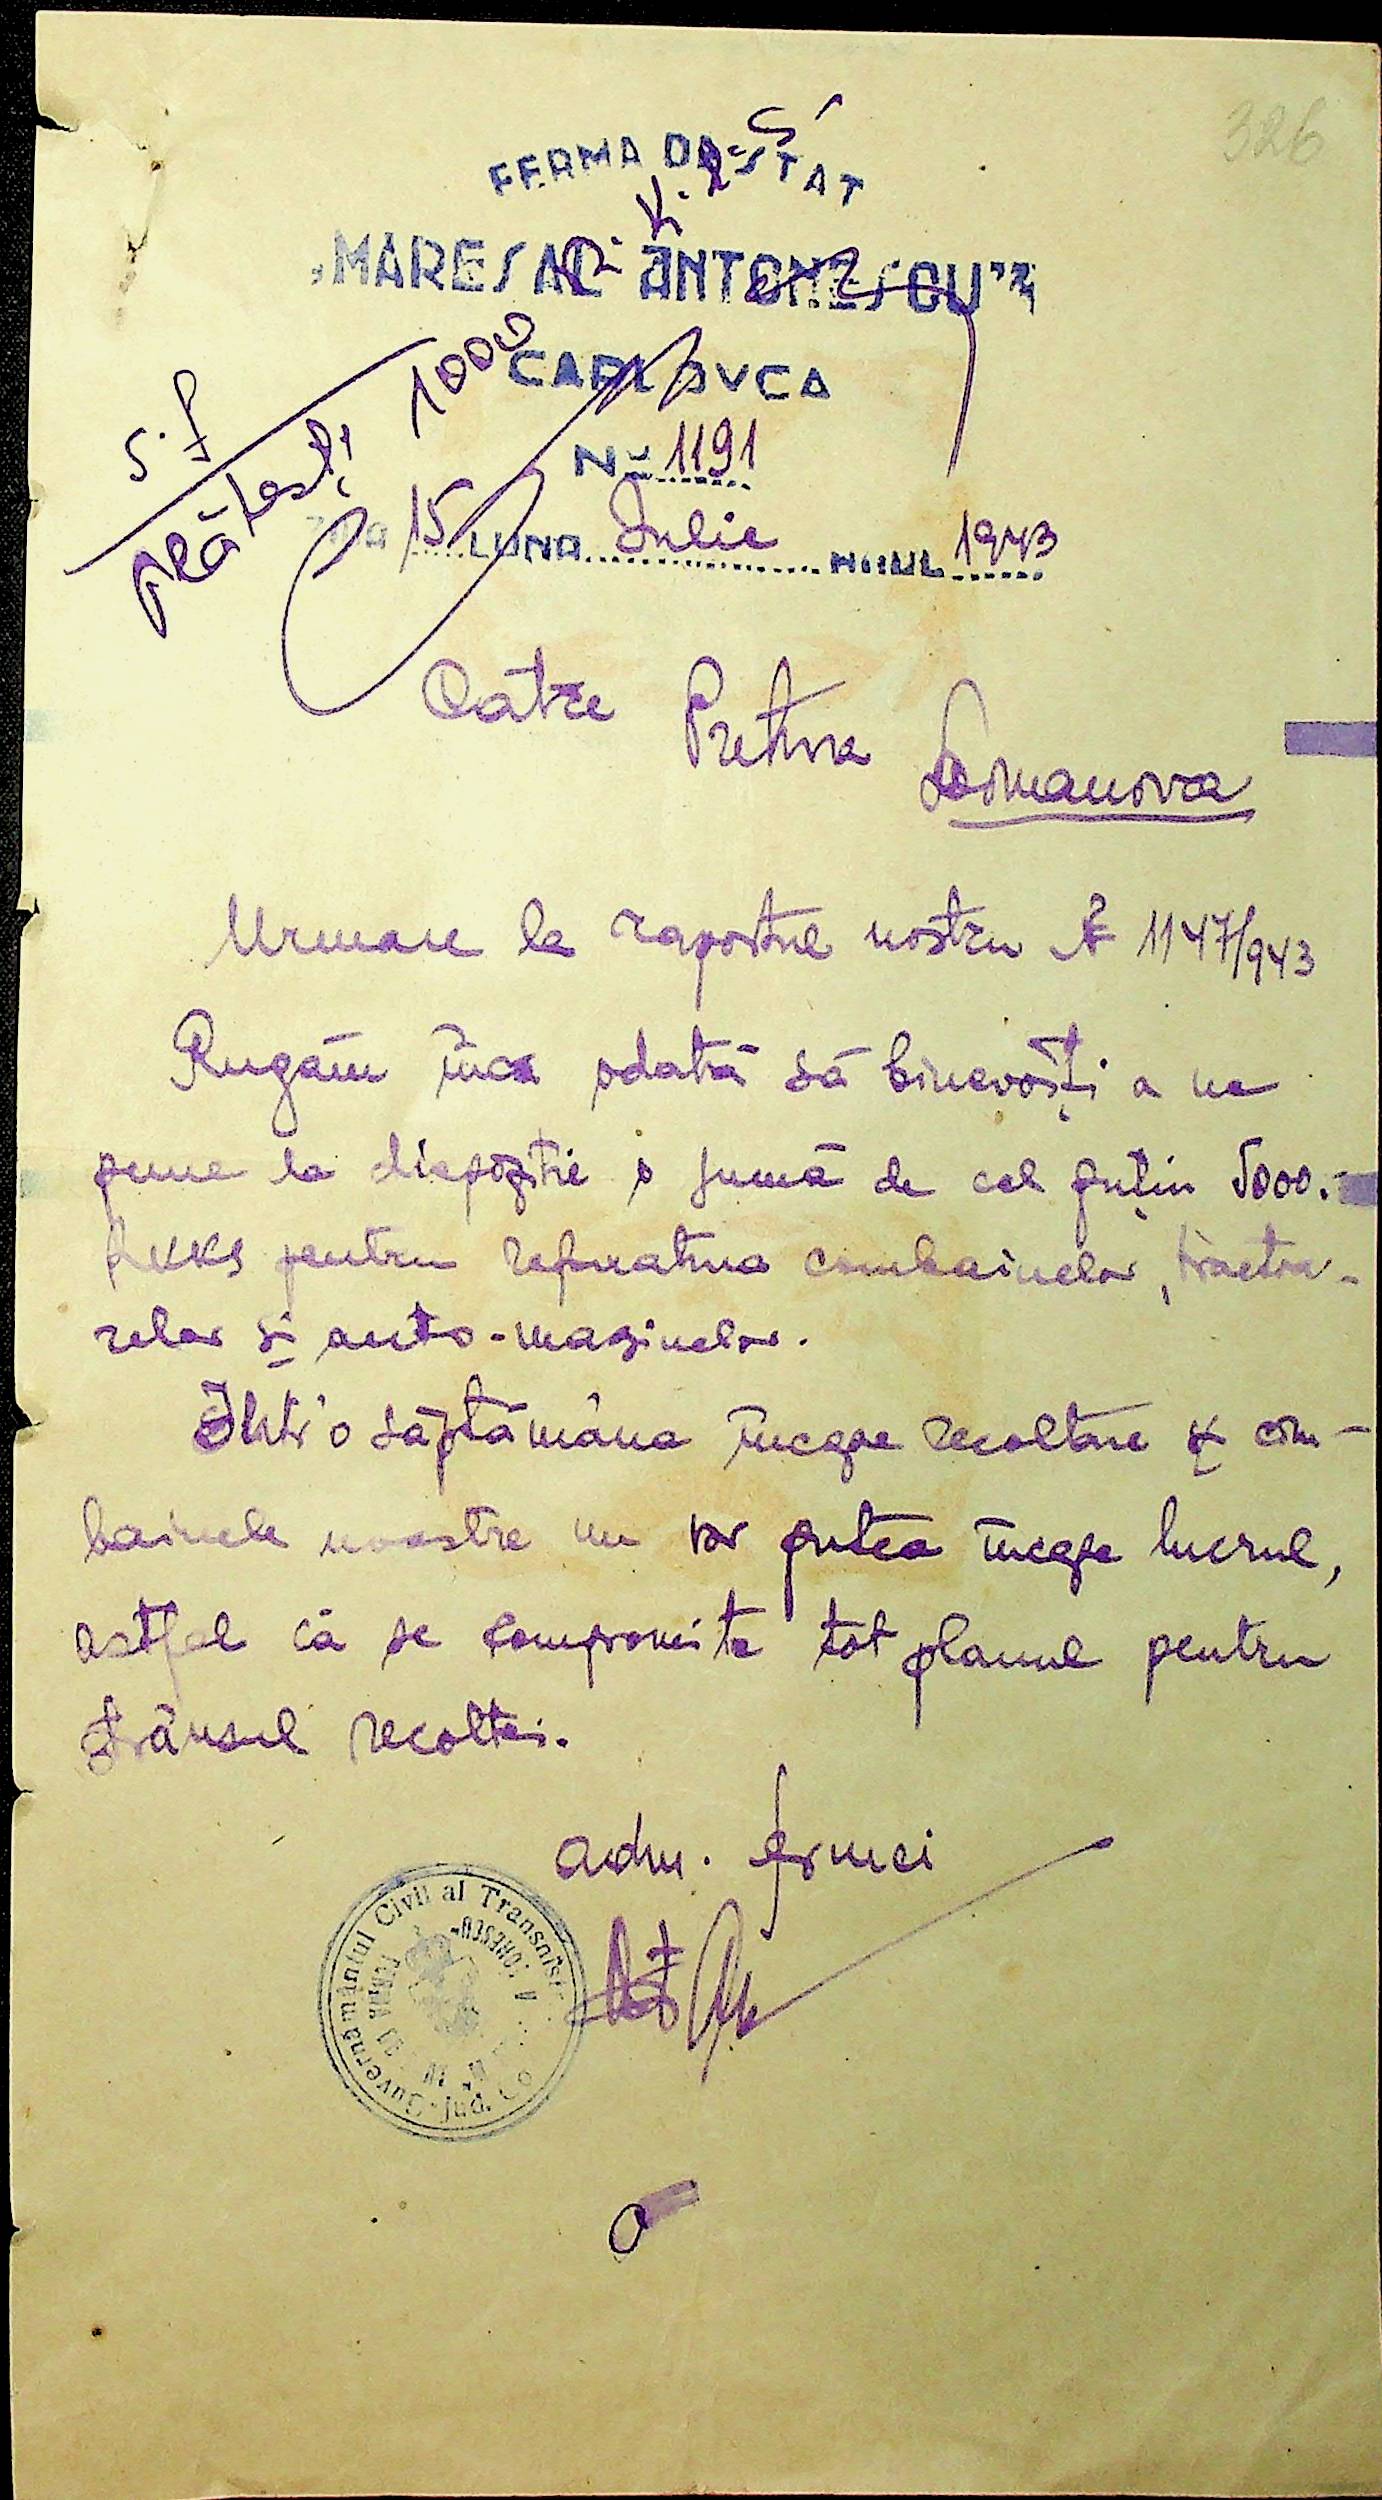 326
FERMA DE STAT
„MARESAL ANTONESCU”
CARLOVCA
No 1191
S.f
plătești 1000
ZIUA 15 LUNA Iulie ANUL 1943
Către Pretura Domanovca
Urmare la raportul nostru № 1147/943
Rugăm încă odată să binevoiți a ne
pune la dispoziție o sumă de cel puțin 5000.-
RKKS pentru reparatura combainelor, tractoa-
relor și auto-mașinelor.
Într'o săptămâna începe recoltare și com-
bainele noastre nu vor putea începe lucrul,
astfel că se compromite tot planul pentru
strânsul recoltei.
adm. fermei
Guvernământul Civil al Transnistr
Jud. Go